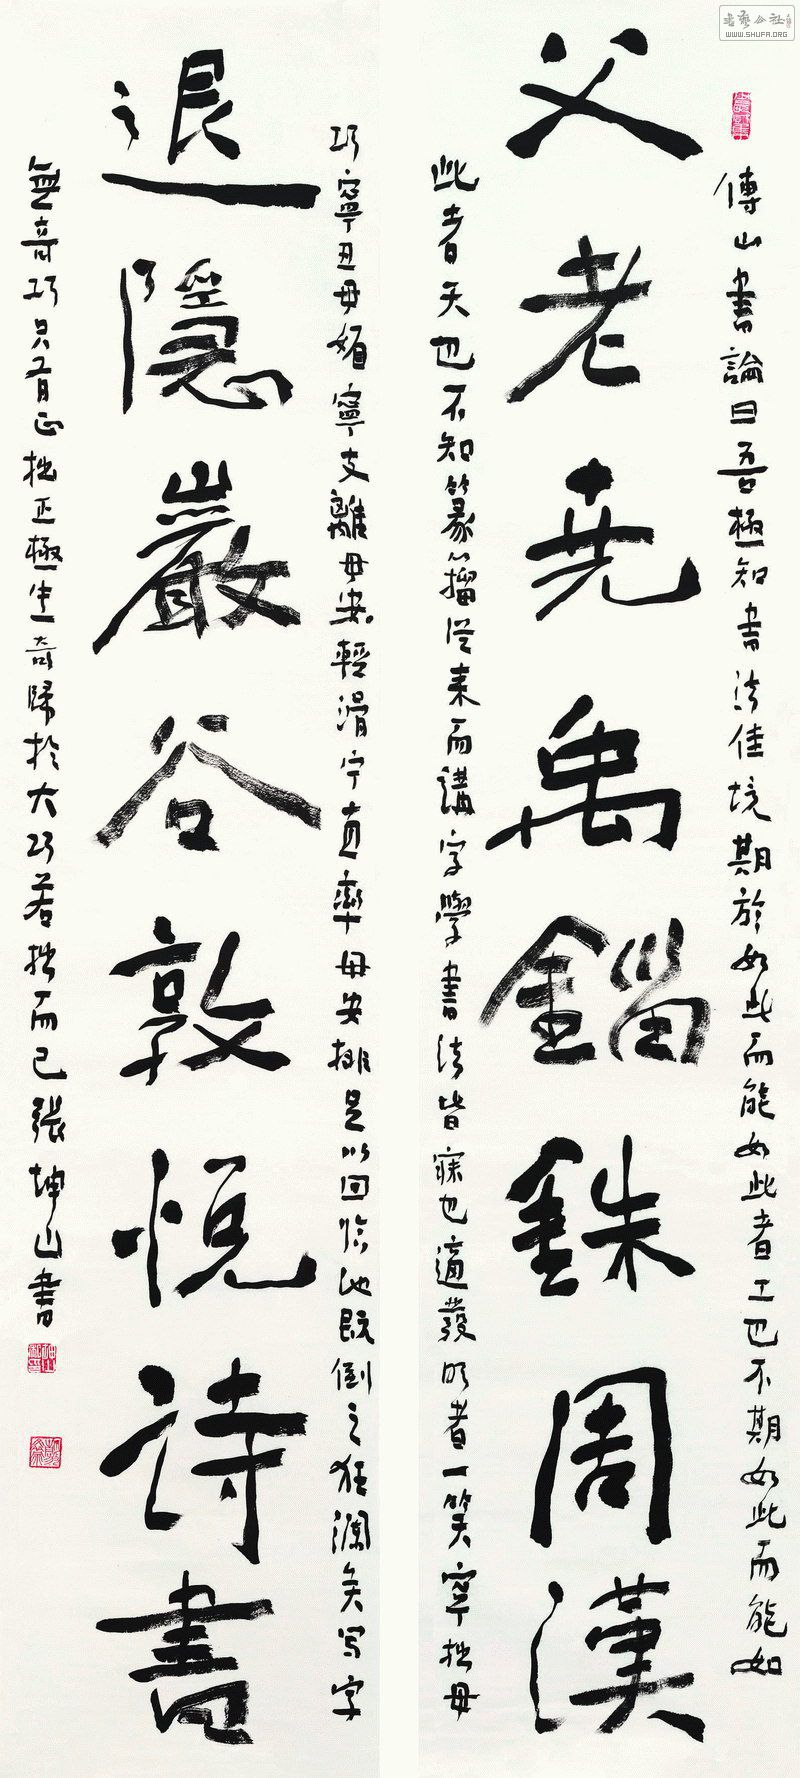 傅山書論曰吾極知書法佳境期於如此而能如此者工也不期如此而能如
父老堯禹錙銖周漢
此者天也不知篆籀從來而講字學書法皆寐也適發明者一笑寧拙毋
巧寧丑毋媚寧支離毋安輕滑宁直率毋安排足以回臨池既倒之狂瀾矣写字
退隱巖谷敦悅詩書
無奇巧只有正拙正極生奇歸於大巧若拙而已張坤山書
WWW.SHUFA.ORG